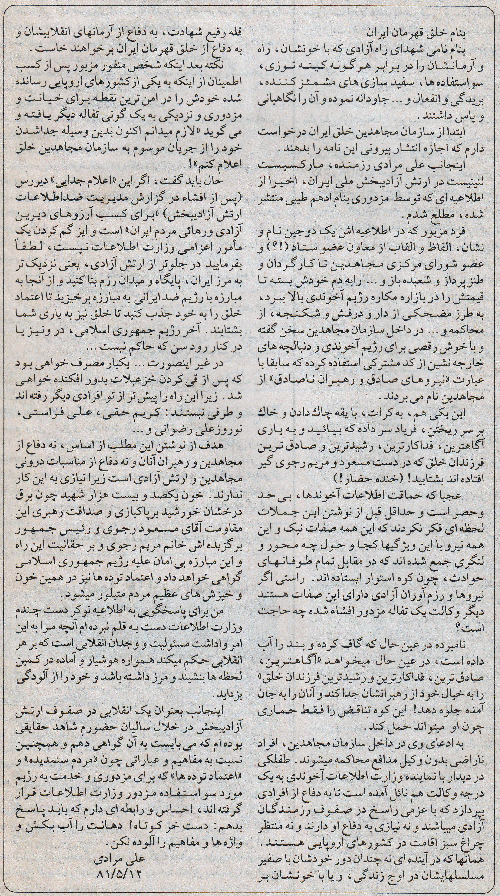 بنام خلق قهرمان ایران
بنام نامی شهدای راه آزادی که با خونشان، راه
و آرمانشان را در برابر هرگونه کینه توزی،
سواستفاده ها، سفید سازی های مشمئز کننده،
بریدگی و انفعال و... جاودانه نموده و آن را نگاهبانی
و پاس داشتند.
ابتدا از سازمان مجاهدین خلق ایران درخواست
دارم که اجازه انتشار بیرونی این نامه را بدهند.
اینجانب علی مرادی رزمنده، مارکسیست
لنینیست در ارتش آزادیبخش ملی ایران، اخیرا از
اطلاعیه ای که توسط مزدوری بنام ادهم طیبی منتشر
شده، مطلع شدم.
فرد مزبور که در اطلاعیه اش یک دوجین نام و
نشان، الفاظ و القاب از معاون عضو ستاد (!؟) و
عضو شورای مرکزی مجاهدین تا کارگردان و
طنز پرداز و شعبده باز و... را به دم خودش بسته تا
قیمتش را در بازار مکاره رژیم آخوندی بالا ببرد،
به طرز مضحکی از دار و درفش و شکنجه، از
محاکمه و... در داخل سازمان مجاهدین سخن گفته
و با خوش رقصی برای رژیم آخوندی و دنبالچه های
خارجه نشین از کد مشترکی استفاده کرده که سابقا با
عبارت «نیروهای صادق و رهبران ناصادق» از
مجاهدین نام می بردند.
این یکی هم، به کرات، با یقه چاک دادن و خاک
بر سر ریختن، فریاد سر داده که بیائید و به یاری
آگاهترین، فداکارترین، رشیدترین و صادق ترین
فرزندان خلق که در دست مسعود و مریم رجوی گیر
افتاده اند بشتابید! (خنده حضار!)
عجبا که حماقت اطلاعات آخوندها، بی حد
وحصر است و حداقل قبل از نوشتن این جملات
لحظه ای فکر نکردند که این همه صفات نیک و این
همه نیرو با این ویژگیها کجا و حول چه محور و
لنگری جمع شده اند که در مقابل تمام طوفانهای
حوادث، چون کوه استوار ایستاده اند. راستی اگر
نیروها و رزم آوران آزادی دارای این صفات هستند
دیگر وکالت یک تفاله مزدور افشاء شده چه حاجت
است؟
نامبرده در عین حال که گاف کرده و بند را آب
داده است، در عین حال میخواهد «آگاهترین،
صادق ترین، فداکارترین و رشیدترین فرزندان خلق»
را به خیال خود از رهبرانشان جدا کند و آنان را به جان
آمده جلوه دهد! این کوه تناقض را فقط حماری
چون او میتواند حمل کند.
به ادعای وی در داخل سازمان مجاهدین، افراد
ناراضی بدون وکیل مدافع محاکمه میشوند. طفلکی
در دیدار با نماینده وزارت اطلاعات آخوندی به یک
درجه وکالت هم نائل آمده است تا به دفاع از افرادی
بپردازد که با عزمی راسخ در صفوف رزمندگان
آزادی میباشند و نه نیازی به دفاع او دارند و نه منتظر
چراغ سبز اقامت در کشورهای اروپایی هستند.
همانها که در آینده ای نه چندان دور خودشان با صفیر
مسلسلهایشان در اوج زندگی، و یا با خونشان بر
قله رفیع شهادت، به دفاع از آرمانهای انقلابیشان و
به دفاع از خلق قهرمان ایران برخواهند خاست.
نکته بعد اینکه شخص منفور مزبور پس از کسب
اطمینان از اینکه به یکی از کشورهای اروپایی رسانده
شده خودش را در امن ترین نقطه برای خیانت و
مزدوری و نزدیکی به یک گونی تفاله دیگر یافته و
می گوید «لازم میدانم اکنون بدین وسیله جداشدن
خود را از جریان موسوم به سازمان مجاهدین خلق
اعلام کنم»!
حال باید گفت، اگر این «اعلام جدایی» دیررس
(پس از افشاء در گزارش مدیریت ضداطلاعات
ارتش آزادیبخش) «برای کسب آرزوهای دیرین
آزادی و رهائی مردم ایران» است و ایز گم کردن یک
مأمور اعزامی وزارت اطلاعات نیست، لطفاً
بفرمایید در جلوتر از ارتش آزادی، یعنی نزدیک تر
به مرز ایران، پایگاه و میدان رزم بنا کنید و از آنجا به
مبارزه با رژیم ضد ایرانی به مبارزه برخیزید تا اعتماد
خلق را به خود جذب کنید تا خلق نیز به یاری شما
بشتابند. آخر رژیم جمهوری اسلامی، در ونیز یا
در کنار رود سن که حاکم نیست...
در غیر اینصورت... یکبار مصرف خواهی بود
که پس از قی کردن خزعبلات بدور افکنده خواهی
شد. زیرا این راه را پیش تر از تو افرادی دیگر رفته اند
و طرفی نبستند: کریم حقی، علی فراستی،
نوروزعلی رضوانی و...
هدف از نوشتن این مطلب از اساس، نه دفاع از
مجاهدین و رهبری آنان و نه دفاع از مناسبات درونی
مجاهدین و ارتش آزادی است زیرا نیازی به این کار
ندارند. خون یکصد و بیست هزار شهید چون برق
درخشان خورشید بر پاکبازی و صداقت رهبری این
مقاومت آقای مسعود رجوی و رئیس جمهور
برگزیده اش خانم مریم رجوی و بر حقانیت این راه
و این مبارزه بی امان علیه رژیم جمهوری اسلامی
گواهی خواهد داد و اعتماد توده ها نیز در همین خون
و خیزش های عظیم مردم متبلور میشود.
من برای پاسخگویی به اطلاعیه نوکر دست چندم
وزارت اطلاعات دست به قلم نبرده ام آنچه مرا به این
امر وا داشت مسئولیت و وجدان انقلابی است که بر هر
انقلابی حکم میکند همواره هوشیار و آماده در کمین
لحظه ها بنشیند و مرز داشته باشد و خود را از آلودگی
بزداید.
اینجانب بعنوان یک انقلابی در صفوف ارتش
آزادیبخش در خلال سالیان حضورم شاهد حقایقی
بوده ام که می بایست به آن گواهی دهم و همچنین
نسبت به مفاهیم و عباراتی چون «مردم ستمدیده» و
«اعتماد توده ها» که برای مزدوری و خدمت به رژیم
مورد سواستفاده مزدور وزارت اطلاعات قرار
گرفته اند، احساس و رابطه ای دارم که باید پاسخ
بدهم: دست خر کوتاه! دهانت را آب بکش و
واژه ها و مفاهیم را آلوده نکن.
علی مرادی
۸۱/۵/۱۲